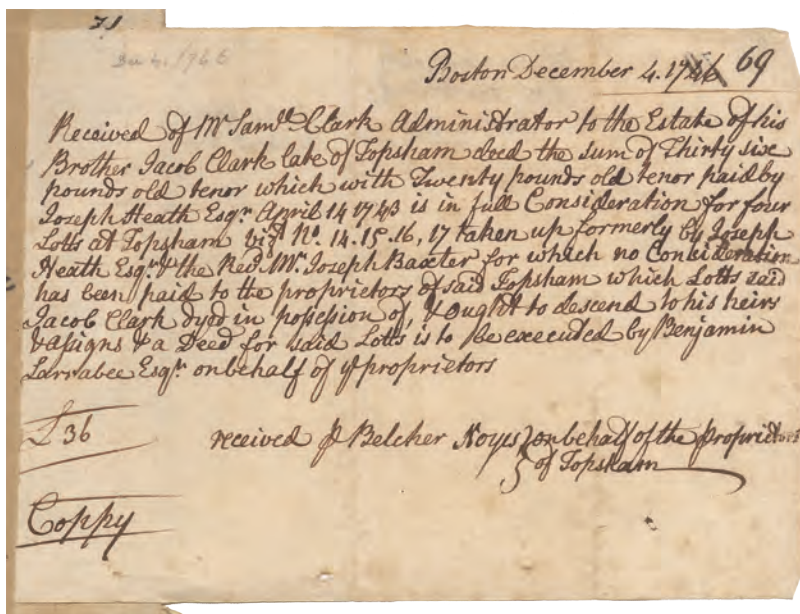 71
Boston December 4. 1746 69
Received of Mr Samll Clark Administrator to the Estate of his
Brother Jacob Clark late of Topsham deed the sum of Thirty six
pounds old tenor which with Twenty pounds old tenor paid by
Joseph Heath Esqr April 14 1743 is in full Consideration for four
Lotts at Topsham vizt No. 14. 15. 16, 17 taken up formerly by Joseph
Heath Esqr & the Revd Mr Joseph Baxter for which no Consideration
has been paid to the proprietors of said Topsham which Lotts said
Jacob Clark dyed in possesion of, & ought to descend to his heirs
& asigns & a Deed for said Lotts is to be executed by Benjamin
Larrabee Esqr on behalf of ye proprietors
£36 received p Belcher Noyes on behalf of the proprietors
of Topsham
Coppy